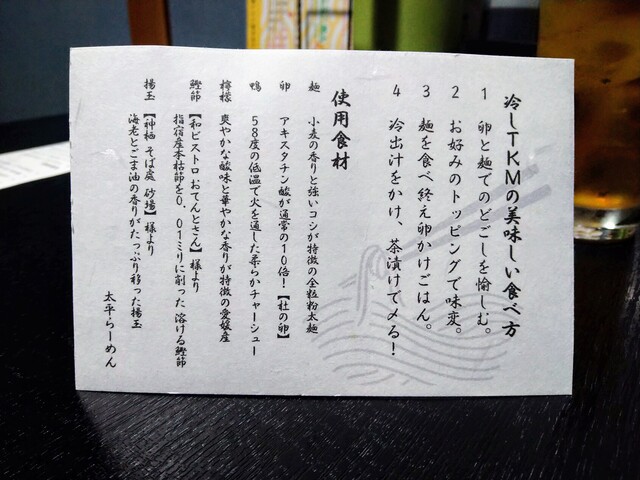 冷しTKMの美味しい食べ方
1 卵と麺でのどごしを愉しむ。
2 お好みのトッピングで味変。
3 麺を食べ終え卵かけごはん。
4 冷出汁をかけ、茶漬けで〆る!
使用食材
麺 小麦の香りと強いコシが特徴の全粒粉太麺
卵 アキスタチン酸が通常の10倍!【杜の卵】
鴨 58度の低温で火を通した柔らかチャーシュー
檸檬 爽やかな酸味と華やかな香りが特徴の愛媛産
鰹節 【和ビストロ おてんとさん】様より
指宿産本枯節を0.01ミリに削った 溶ける鰹節
揚玉 【神栖 そば處 砂場】様より
海老とごま油の香りがたっぷり移った揚玉
太平らーめん